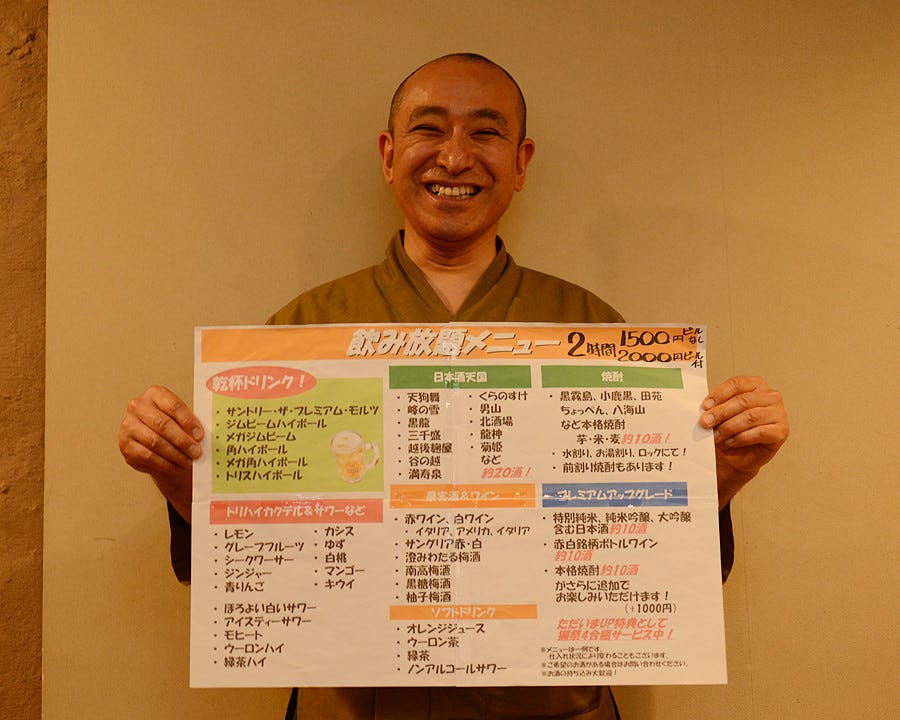 飲み放題メニュー 2時間 1500円ビールなし
2000円ビール付
乾杯ドリンク！
・サントリー・ザ・プレミアム・モルツ
・ジムビームハイボール
・メガジムビーム
・角ハイボール
・メガ角ハイボール
・トリスハイボール
トリハイカクテル&サワーなど
・レモン
・グレープフルーツ
・シークワーサー
・ジンジャー
・青りんご
・カシス
・ゆず
・白桃
・マンゴー
・キウイ
・ほろよい白いサワー
・アイスティーサワー
・モヒート
・ウーロンハイ
・緑茶ハイ
日本酒天国
・天狗舞
・峰の雪
・黒龍
・三千盛
・越後麹屋
・谷の越
・満寿泉
・くらのすけ
・男山
・北酒場
・龍神
・菊姫
など
約20酒！
果実酒&ワイン
・赤ワイン、白ワイン
・イタリア、アメリカ、イタリア
・サングリア赤・白
・澄みわたる梅酒
・南高梅酒
・黒糖梅酒
・柚子梅酒
ソフトドリンク
・オレンジジュース
・ウーロン茶
・緑茶
・ノンアルコールサワー
焼酎
・黒霧島、小鹿黒、田苑
ちょっぺん、八海山
など本格焼酎
芋・米・麦約10酒！
・水割り、お湯割り、ロックにて！
・前割り焼酎もあります！
プレミアムアップグレード
・特別純米、純米吟醸、大吟醸
含む日本酒約10酒
・赤白銘柄ボトルワイン
約10酒
・本格焼酎約10酒
がさらに追加で
お楽しみいただけます！
（+1000円）
ただいまUP特典として
獺祭4合瓶サービス中！
※メニューは一例です。
仕入れ状況により変わることもございます。
※ご希望のお酒がある場合はお問い合わせください。
※お酒の持ち込み大歓迎！